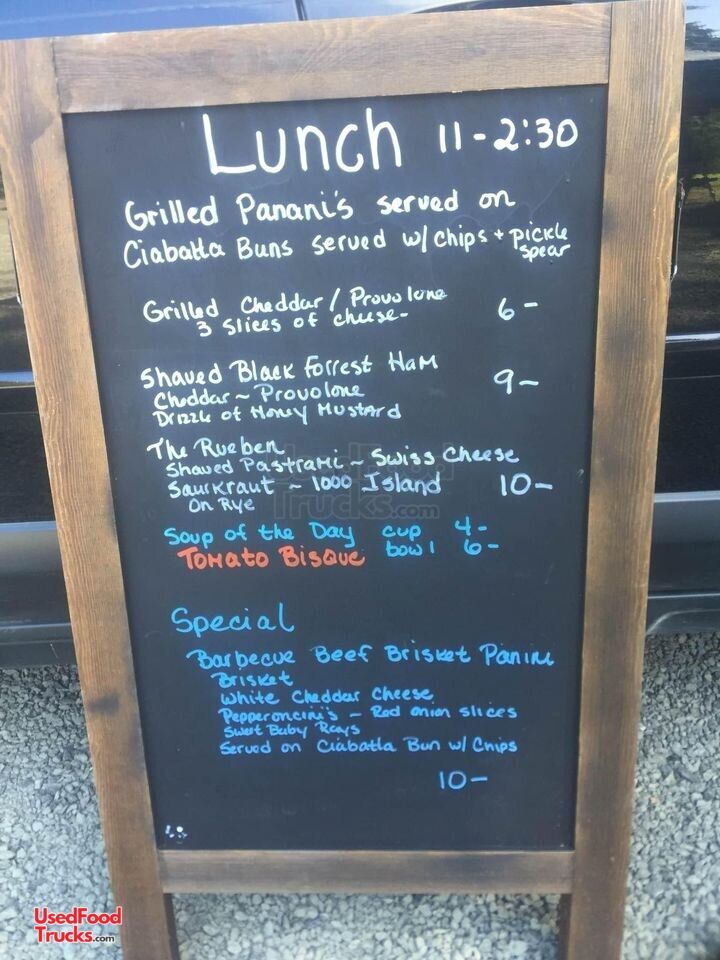 Lunch 11-2:30
Grilled Panani's served on
Ciabatta Buns served w/ chips + pickle
spear
Grilled Cheddar / Provolone 6-
3 slices of cheese-
Shaved Black Forrest Ham 9-
Cheddar ~ Provolone
Drizzle of Honey Mustard
The Rueben
Shaved Pastrami ~ Swiss Cheese
Saurkraut ~ 1000 Island 10-
On Rye
Soup of the Day cup 4-
Tomato Bisque bowl 6-
Special
Barbecue Beef Brisket Panini
Brisket
White Cheddar Cheese
Pepperoncini's - Red onion slices
Sweet Baby Rays
Served on Ciabatta Bun w/ Chips
10-
UsedFood
Trucks.com
UsedFood
Trucks.com